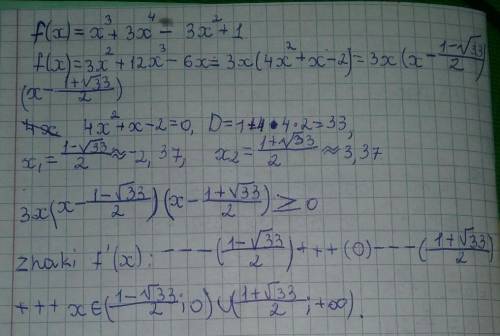 f(x)=x³+3x⁴-3x²+1
f(x)=3x²+12x³-6x=3x(4x²+x-2)=3x(x-(1-√33)/2)
(x-(1+√33)/2)
4x²+x-2=0, D=1+4·4·2=33,
x₁=(1-√33)/2≈-2,37, x₂=(1+√33)/2≈3,37
3x(x-(1-√33)/2)(x-(1+√33)/2)≥0
znaki f'(x): ---((1-√33)/2)+++(0)---((1+√33)/2)
+++ x∈((1-√33)/2;0)∪((1+√33)/2;+∞).